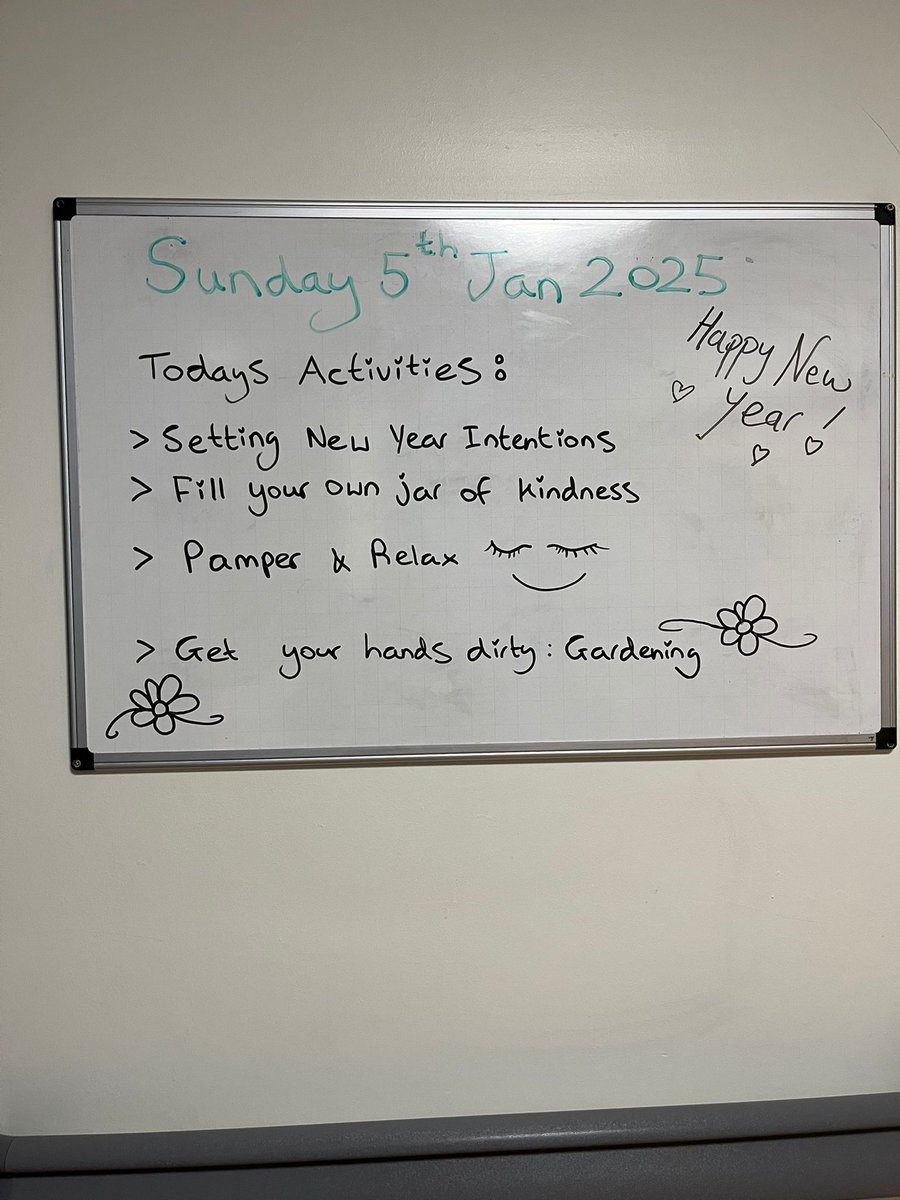 Sunday 5th Jan 2025
Happy New
Year!
Todays Activities:
> Setting New Year Intentions
> Fill your own jar of kindness
> Pamper & Relax
> Get your hands dirty: Gardening